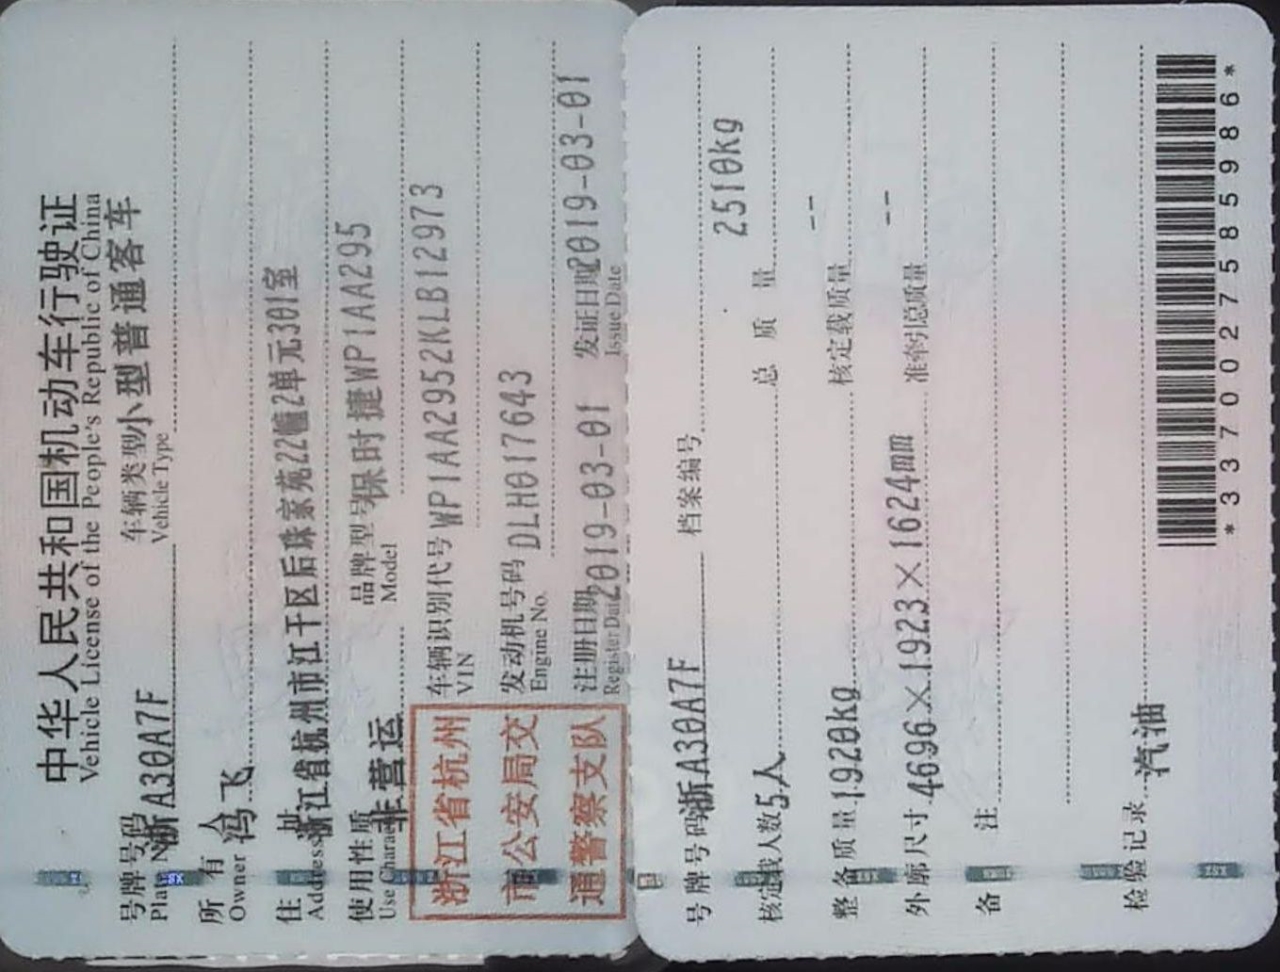 中华人民共和国机动车行驶证
Vehicle License of the People's Republic of China
号牌号码 浙A30A7F 车辆类型 小型普通客车
Plate No. Vehicle Type
所有人 冯飞
Owner
住址 浙江省杭州市江干区后珠家苑22幢2单元301室
Address
使用性质 非营运 品牌型号 保时捷WP1AA295
Use Character Model
浙江省杭州市公安局交通警察支队
车辆识别代号 WP1AA2952KLB12973
VIN
发动机号码 DLH017643
Engine No.
注册日期 2019-03-01 发证日期 2019-03-01
Register Date Issue Date
号牌号码 浙A30A7F 档案编号
核定载人数 5人 总质量 2510kg
整备质量 1920kg 核定载质量 --
外廓尺寸 4696×1923×1624mm 准牵引总质量 --
备注
检验记录 汽油
*3370027585986*